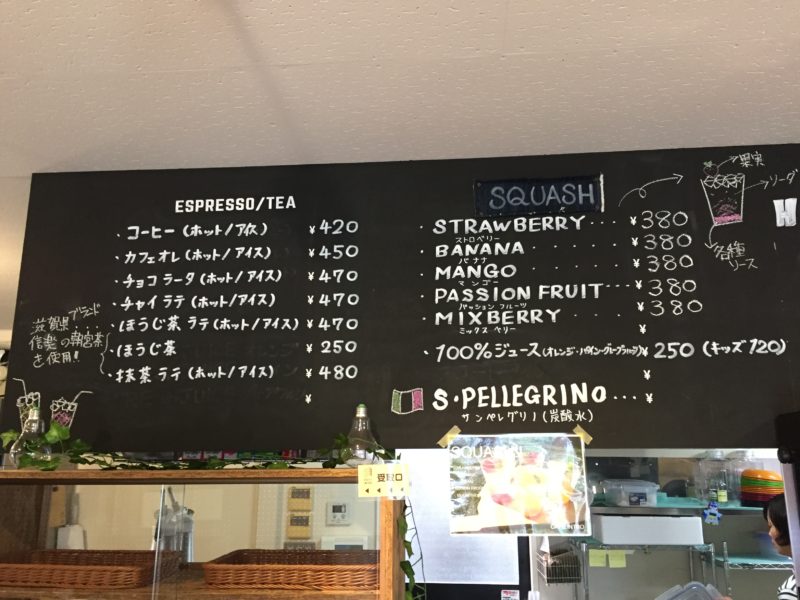 ESPRESSO/TEA
・コーヒー (ホット/アイス) ¥420
・カフェオレ (ホット/アイス) ¥450
・チョコラータ (ホット/アイス) ¥470
・チャイラテ (ホット/アイス) ¥470
・ほうじ茶 ラテ (ホット/アイス) ¥470
・ほうじ茶 ¥250
・抹茶 ラテ (ホット/アイス) ¥480
¥
滋賀県ブランド....
信楽の朝宮茶
を使用!!
SQUASH
・STRAWBERRY... ¥380
ストロベリー
・BANANA...... ¥380
バナナ
・MANGO...... ¥380
マンゴー
・PASSION FRUIT... ¥380
パッション フルーツ
・MIXBERRY ¥380
ミックス ベリー
¥
・100%ジュース(オレンジ・パイン・グレープフルーツ) ¥250 (キッズ120)
¥
S・PELLEGRINO... ¥
サンペレグリノ(炭酸水)
果実
ソーダ
各種
ソース
SQUASH
受取口